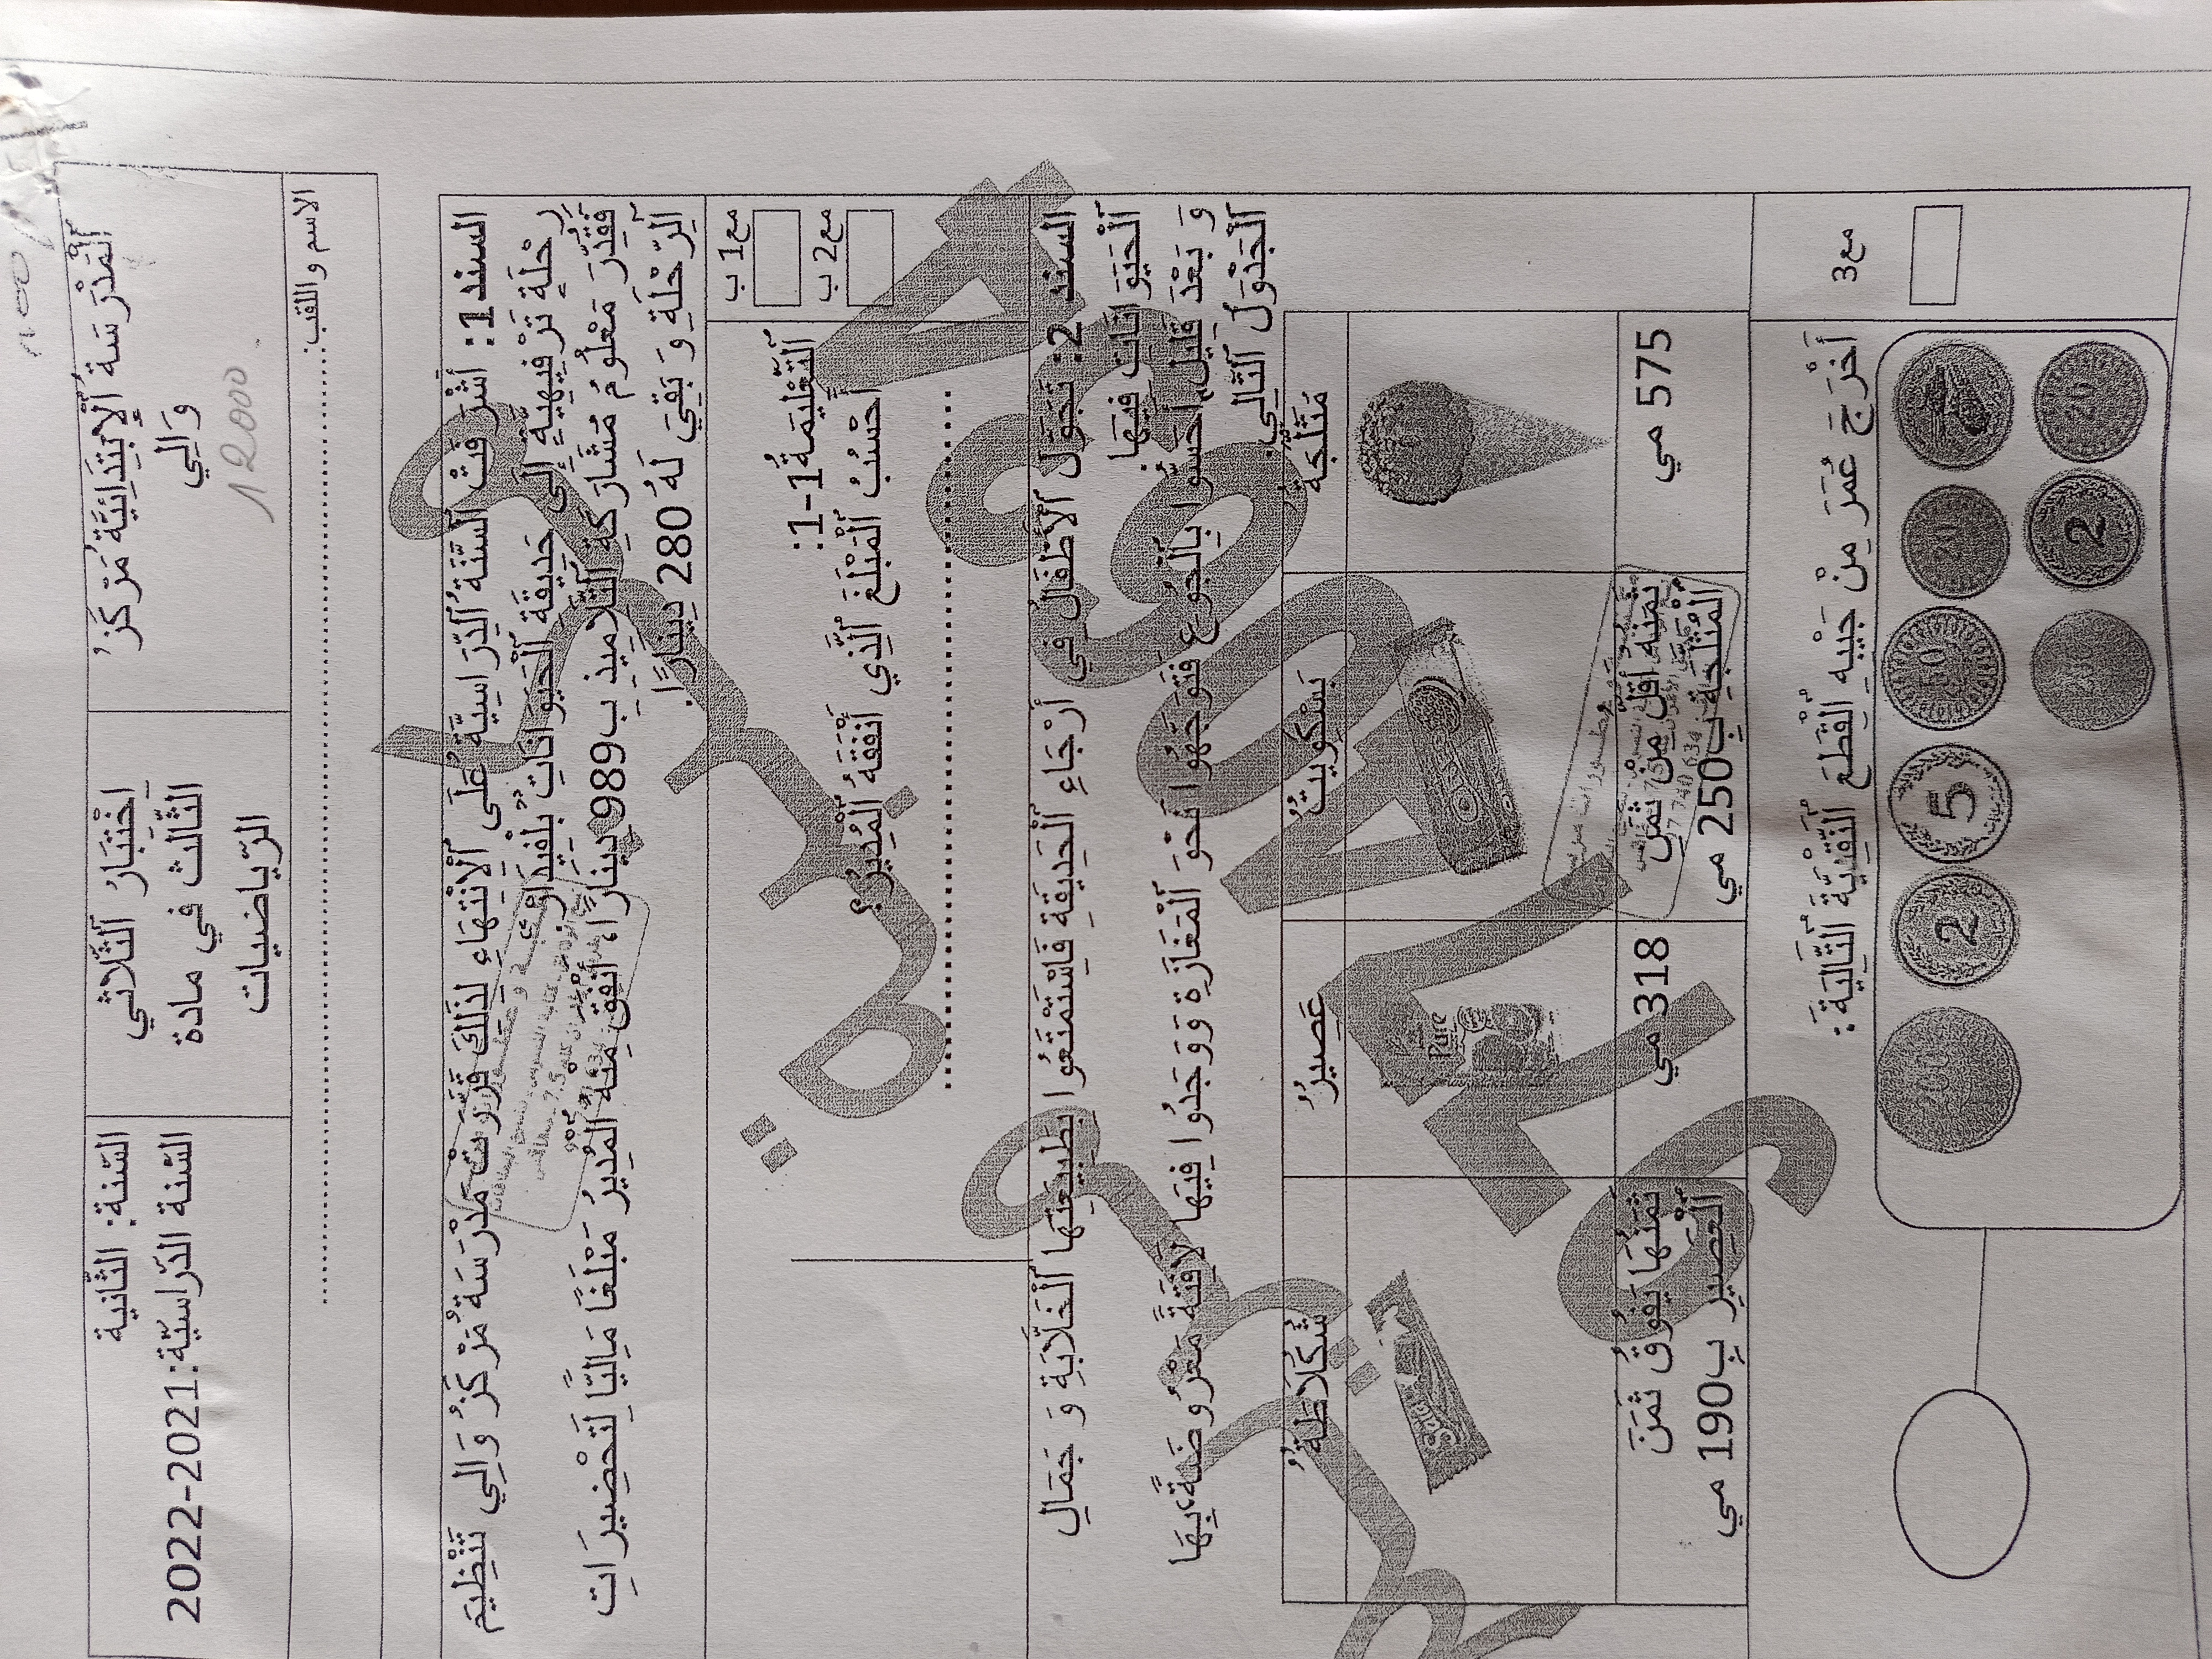 اَلْمَدْرَسَةُ اَلْإِبْتِدَائِيَّةُ مَرْكَزُ وَالِي
12000
اخْتِبَارُ اَلثُّلَاثِي الثَّالث فِي مادة الرّياضيات
السّنة: الثّانية
السّنة الدّراسيّة:2021-2022
الاسم واللقب:
السند 1: أَشْرَفَتْ اَلسَّنَةُ اَلدِّرَاسِيَّةُ عَلَى اَلْاِنْتِهَاءِ لِذَلِكَ قَرَّرَتْ مَدْرَسَةُ مَرْكَزُ وَالِي تَنْظِيمَ
رِحْلَةٍ تَرْفِيهِيَّةٍ إِلَى حَدِيقَةِ اَلْحَيَوَانَاتِ بِلْفِيدَارْ.
فَقُدِّرَ مَعْلُومُ مُشَارَكَةِ اَلتَّلَامِيذِ بِ989 دِينَارًا، أَنْفَقَ مِنْهُ اَلْمُدِيرُ مَبْلَغًا مَالِيًّا لِتَحْضِيرَاتِ
اَلرِّحْلَةِ وَ بَقِيَ لَهُ 280 دِينَارًا.
مع1 ب
مع2 ب
اَلتَّعْلِيمَةُ 1-1:
أَحْسُبُ اَلْمَبْلَغَ اَلَّذِي أَنْفَقَهُ اَلْمُدِيرُ؟
السند 2: تَجَوَّلَ اَلْأَطْفَالُ فِي أَرْجَاءِ اَلْحَدِيقَةِ فَاِسْتَمْتَعُوا بِطَبِيعَتِهَا اَلْخَلَّابَةِ وَ جَمَالِ
اَلْحَيَوَانَاتِ فِيهَا.
وَ بَعْدَ قَلِيلٍ أَحَسُّوا بِالْجُوعِ فَتَوَجَّهُوا نَحْوَ اَلْمَغَازَةِ وَوَجَدُوا فِيهَا لَافِتَةً مَعْرُوضَةً، بِهَا
اَلْجَدْوَلُ اَلتَّالِي:
مُثَلَّجَةٌ
بَسْكُوِيتٌ
عَصِيرٌ
شُكُلَاطَةٌ
575 مي
ثَمَنُهُ أَقَلُّ مِنْ ثَمَنِ اَلْمُثَلَّجَةِ بِ250 مي
318 مي
ثَمَنُهَا يَفُوقُ ثَمَنَ اَلْعَصِيرِ بِ190 مي
Pure
Saida
مع3
أَخْرَجَ عُمَرَ مِنْ جَيْبِهِ اَلْقِطَعَ اَلنَّقْدِيَّةَ اَلتَّالِيَةَ:
20
50
5
2
200
20
2